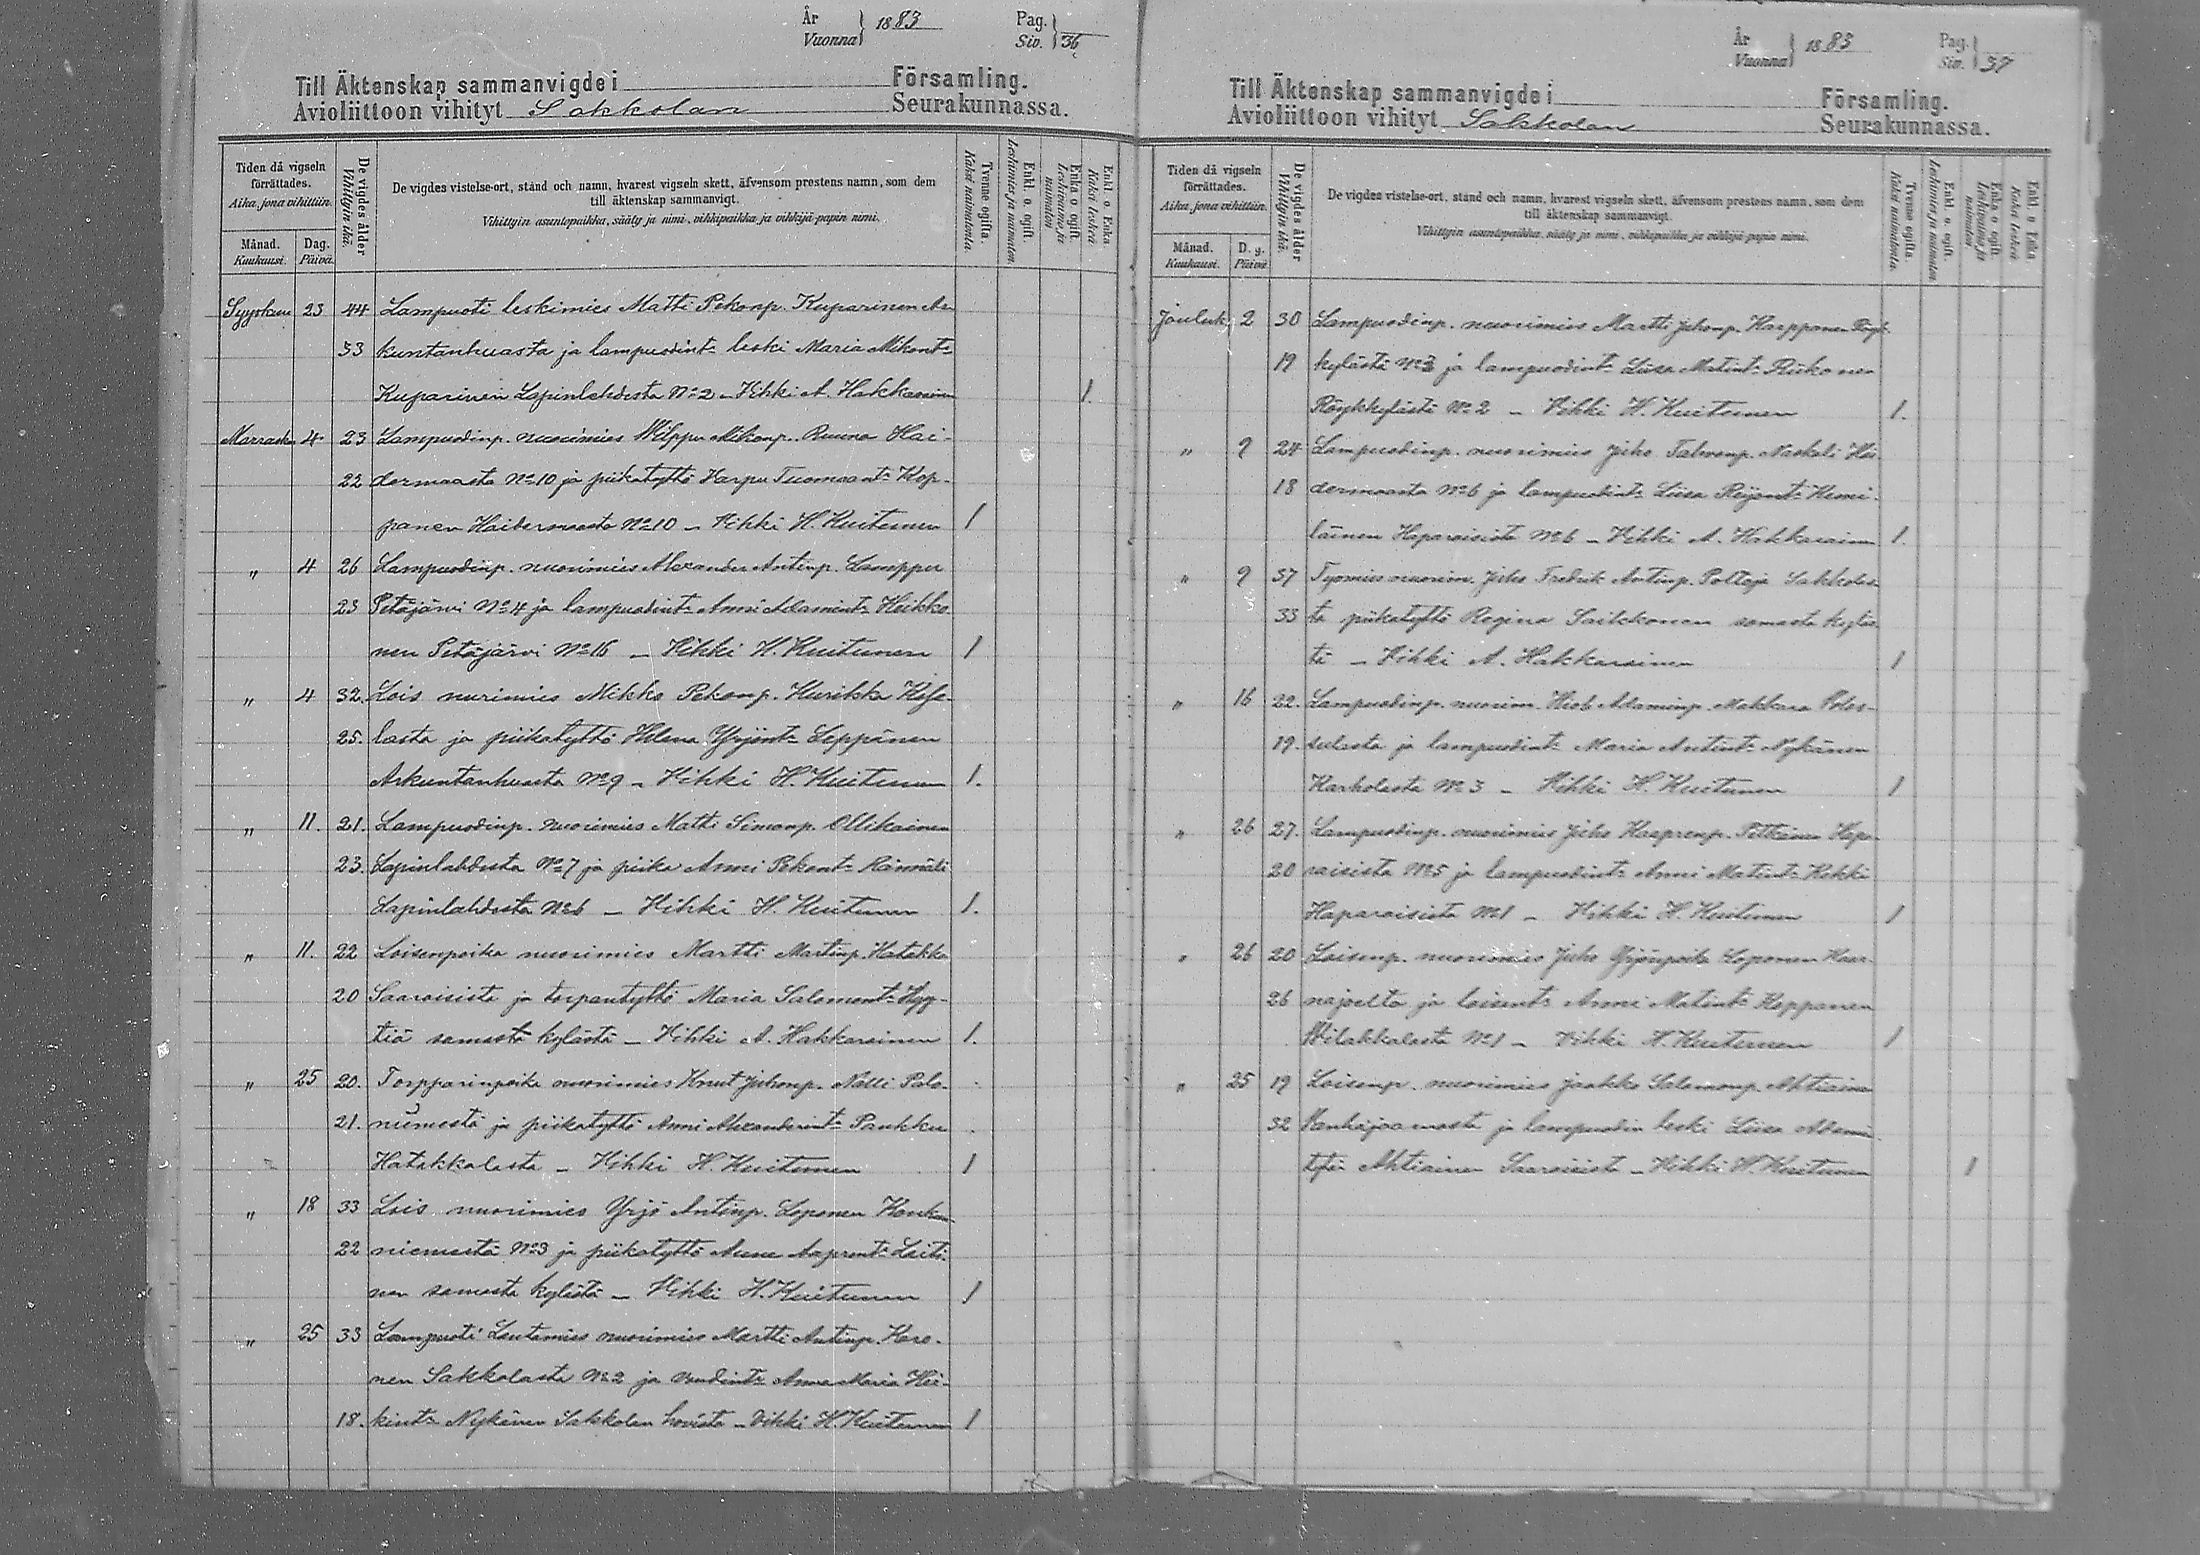 År
Vuonna } 1883 Pag.
Siv. } 36
Till Äktenskap sammanvigde i Församling.
Avioliittoon vihityt Sakkolan Seurakunnassa.
Tiden då vigseln förrättades.
Aika, jona vihittiin.
Månad.
Kuukausi.
Dag.
Päivä.
De vigdes ålder
Vihittyin ikä.
De vigdes vistelse-ort, stånd och namn, hvarest vigseln skett, äfvensom prestens namn, som dem
till äktenskap sammanvigt.
Vihittyin asuntopaikka, sääty ja nimi, vihkipaikka ja vihkijä-papin nimi.
Tvenne ogifta.
Kaksi naimatonta.
Enkl. o. ogift.
Leskimies ja naimaton.
Enka o. ogift.
Leskivaimo ja naimaton
Enkl. o Enka
Kaksi leskeä
Syyskuu 23 44 Lampuoti leskimies Matti Pekanp. Kuparinen Ar
53 kuntanhuasta ja lampuodint: leski Maria Mikont:
Kuparinen Lapinlahdesta No 2 – Vihki A. Hakkarainen 1.
Marrasku 4 23 Lampuodinp. nuorimies Wilppu Mikonp. Ruuna Hai-
22 dermaasta No 10 ja piikatyttö Varpu Tuomaant: Kop-
panen Haidermaasta No 10 – Vihki H. Kuitunen 1
„ 4 26 Lampuodinp. nuorimies Alexander Antinp. Lamppu
23 Petäjärvi No 4 ja lampuodint: Anni Adamint: Heikko
nen Petäjärvi No 16 – Vihki H. Kuitunen 1
„ 4 32. Lois nurimies Mikko Pekanp. Kurikka
25. lasta ja piikatyttö Helena Yrjönt: Leppänen
Arkuntanhuasta No 9 – Vihki H. Kuitunen 1.
„ 11. 21. Lampuodinp. nuorimies Matti Simonp. Ollikainen
23. Lapinlahdesta No 7 ja piika Anni Pekant: Rännäli
Lapinlahdesta No 6 – Vihki H. Kuitunen 1.
„ 11. 22 Loisenpoika nuorimies Martti Martinp. Hatakka
20 Saaroisista ja torpantyttö Maria Salomont: Hyy-
tiä samasta kylästä – Vihki A. Hakkarainen 1.
„ 25 20. Torpparinpoika nuorimies Knut Juhonp. Nalli Pala-
21. niemestä ja piikatyttö Anni Alexanderint: Paukku
Hatakkalasta – Vihki H. Kuitunen 1
„ 18 33 Lois nuorimies Yrjö Antinp. Loponen
22 niemestä No 3 ja piikatyttö Anna Aapront: Laiti-
nen samasta kylästä – Vihki H. Kuitunen 1
„ 25 33 Lampuoti Lautamies nuorimies Martti Antinp. Karo-
nen Sakkolasta No 2 ja Anna Maria Hei-
18. kint: Nykänen Sakkolan hovista – Vihki H. Kuitunen 1
År
Vuonna } 1883 Pag.
Siv. } 37
Till Äktenskap sammanvigde i Församling.
Avioliittoon vihityt Sakkolan Seurakunnassa.
Tiden då vigseln förrättades.
Aika, jona vihittiin.
Månad.
Kuukausi.
D. g.
Päivä
De vigdes ålder
Vihittyin ikä.
De vigdes vistelse-ort, stånd och namn, hvarest vigseln skett, äfvensom prestens namn, som dem
till äktenskap sammanvigt.
Vihittyin asuntopaikka, sääty ja nimi, vihkipaikka ja vihkijä-papin nimi.
Tvenne ogifta.
Kaksi naimatonta.
Enkl. o. ogift.
Leskimies ja naimaton.
Enka o. ogift.
Leskivaimo ja naimaton
Enkl. o Enka
Kaksi leskeä
Jouluk. 2 30 Lampuodinp. nuorimies Martti Juhonp. Karpponen Röyk-
19 kylästä No 3 ja lampuodint: Liisa Matint: Riikonen
Röykkylästä No 2 – Vihki H. Kuitunen 1.
„ 9 24 Lampuodinp. nuorimies Juho Naskali Hai
18 dermaasta No 6 ja lampuodint: Liisa Kemi-
läinen Haparaisista No 6 – Vihki A. Hakkarainen 1.
„ 9 37 Työmies nuorim. Juho Fredrik Antinp. Polttaja Sakkolas-
33 ta piikatyttö Regina Saikkonen samasta kyläs-
tä – Vihki A. Hakkarainen 1
„ 16 22. Lampuodinp. nuorim. Hiob Adaminp. Makkara
19. ja lampuodint: Maria Antint: Nykänen
Karholasta No 3 – Vihki H. Kuitunen 1
„ 26 27. Lampuodinp. nuorimies Juho Kasprenp. Pitkänen Hapa-
20 raisista No 5 ja lampuodint: Anni Matint: Kekki
Haparaisista No 1 – Vihki H. Kuitunen 1
„ 26 20 Loisenp. nuorimies Juho Yrjönpoika Loponen Haar-
26 najoelta ja loisent: Anni Matint: Koppanen
Wilakkalasta No 1 – Vihki H. Kuitunen 1
„ 25 19 Loisenp. nuorimies Jaakko Salomonp. Ahtiainen
32 Vanhajaamasta ja lampuodin leski Liisa Adamin
tytär Ahtiainen Saaroisista – Vihki H. Kuitunen 1